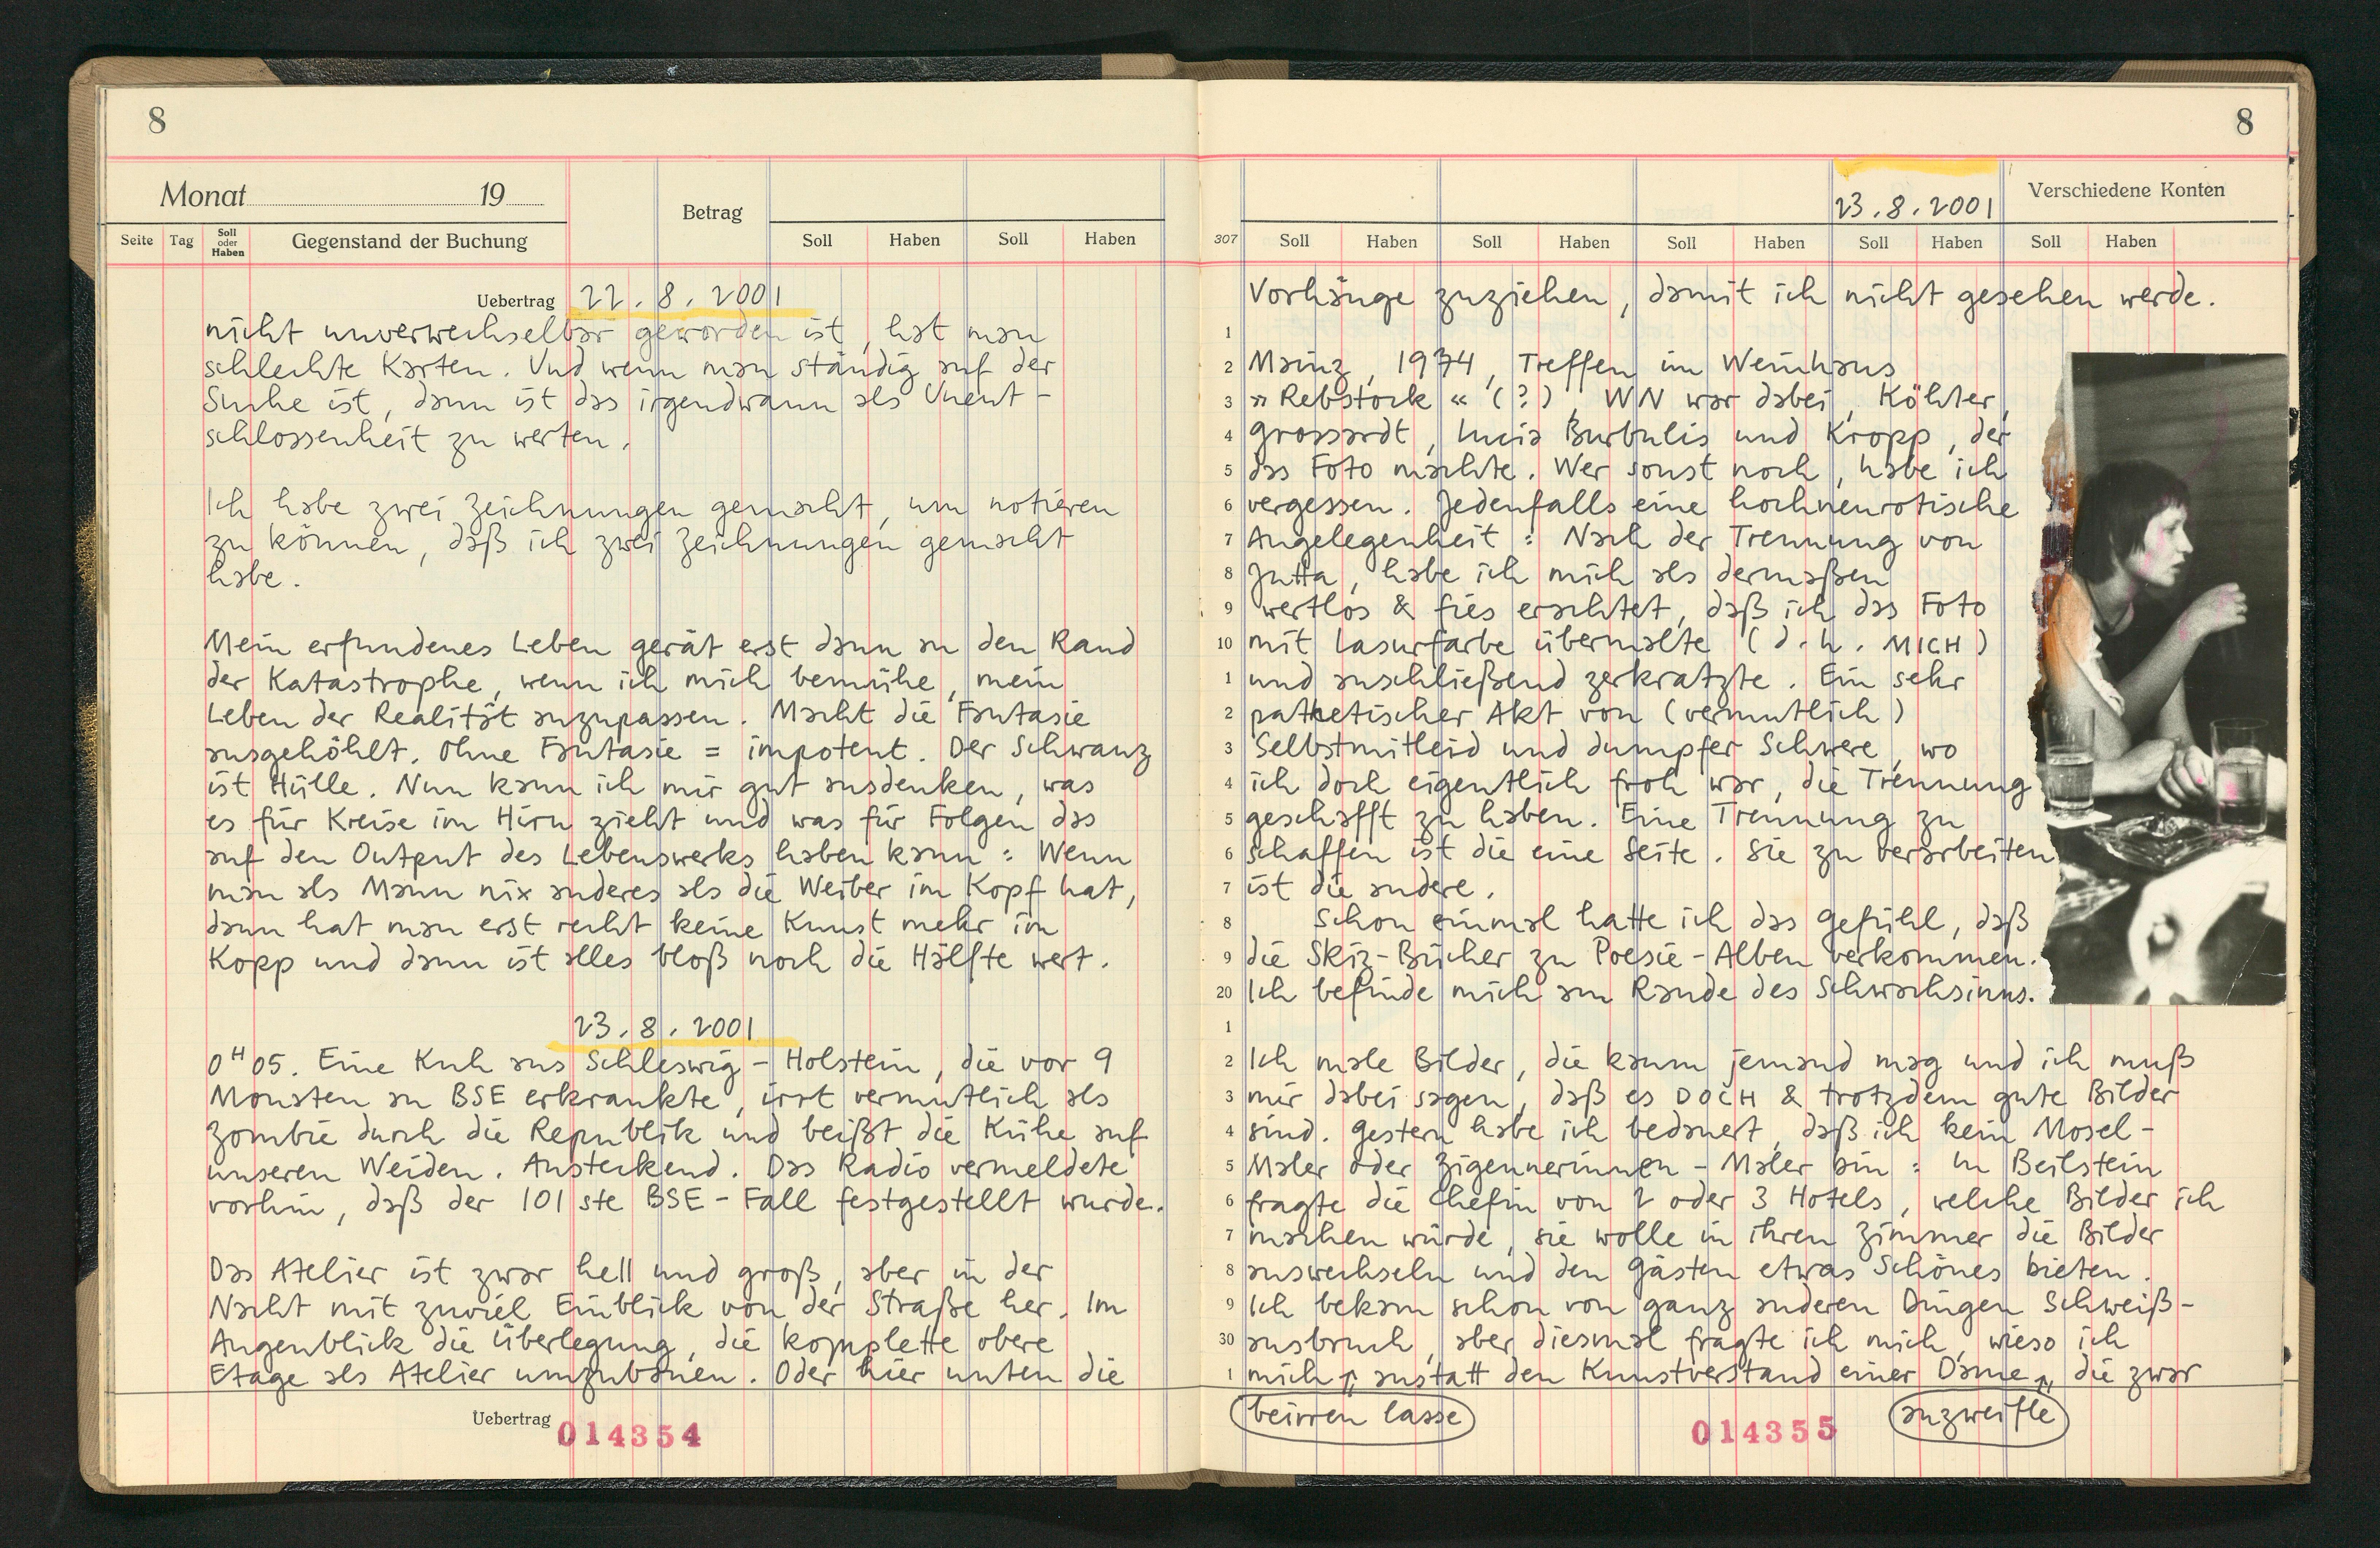 8
Monat 19
Betrag
Seite Tag Soll oder Haben Gegenstand der Buchung Soll Haben Soll Haben
Uebertrag 22.8.2001
nicht unverwechselbar geworden ist, hat man
schlechte Karten. Und wenn man ständig auf der
Suche ist, dann ist das irgendwann als Unent-
schlossenheit zu werten.
Ich habe zwei Zeichnungen gemacht, um notieren
zu können, daß ich zwei Zeichnungen gemacht
habe.
Mein erfundenes Leben gerät erst dann an den Rand
der Katastrophe, wenn ich mich bemühe, mein
Leben der Realität anzupassen. Macht die Fantasie
ausgehöhlt. Ohne Fantasie = impotent. Der Schwanz
ist Hülle. Nun kann ich mir gut ausdenken, was
es für Kreise im Hirn zieht und was für Folgen das
auf den Output des Lebenswerks haben kann: Wenn
man als Mann nix anderes als die Weiber im Kopf hat,
dann hat man erst recht keine Kunst mehr im
Kopp und dann ist alles bloß noch die Hälfte wert.
23.8.2001
0H05. Eine Kuh aus Schleswig-Holstein, die vor 9
Monaten an BSE erkrankte, irrt vermutlich als
Zombie durch die Republik und beißt die Kühe auf
unseren Weiden. Ansteckend. Das Radio vermeldete
vorhin, daß der 101ste BSE-Fall festgestellt wurde.
Das Atelier ist zwar hell und groß, aber in der
Nacht mit zuviel Einblick von der Straße her. Im
Augenblick die Überlegung, die komplette obere
Etage als Atelier umzubauen. Oder hier unten die
Uebertrag 014354
8
23.8.2001 Verschiedene Konten
307 Soll Haben Soll Haben Soll Haben Soll Haben Soll Haben
Vorhänge zuziehen, damit ich nicht gesehen werde.
1
2 Mainz, 1974, Treffen im Weinhaus
3 »Rebstock« (?), WN war dabei, Köhler,
4 Grossardt, Lucia Burbulis und Kropp, der
5 das Foto machte. Wer sonst noch, habe ich
6 vergessen. Jedenfalls eine hochneurotische
7 Angelegenheit: Nach der Trennung von
8 Jutta, habe ich mich als dermaßen
9 wertlos & fies erachtet, daß ich das Foto
10 mit Lasurfarbe übermalte (d.h. MICH)
1 und anschließend zerkratzte. Ein sehr
2 pathetischer Akt von (vermutlich)
3 Selbstmitleid und dumpfer Schwere, wo
4 ich doch eigentlich froh war, die Trennung
5 geschafft zu haben. Eine Trennung zu
6 schaffen ist die eine Seite. Sie zu verarbeiten
7 ist die andere.
8 Schon einmal hatte ich das Gefühl, daß
9 die Skiz-Bücher zu Poesie-Alben verkommen.
20 Ich befinde mich am Rande des Schwachsinns.
1
2 Ich male Bilder, die kaum jemand mag und ich muß
3 mir dabei sagen, daß es DOCH & trotzdem gute Bilder
4 sind. Gestern habe ich bedauert, daß ich kein Mosel-
5 Maler oder Zigeunerinnen-Maler bin: In Beilstein
6 fragte die Chefin von 2 oder 3 Hotels, welche Bilder ich
7 machen würde, sie wolle in ihren Zimmer die Bilder
8 auswechseln und den Gästen etwas Schönes bieten.
9 Ich bekam schon von ganz anderen Dingen Schweiß-
30 ausbruch, aber diesmal fragte ich mich, wieso ich
1 mich anstatt den Kunstverstand einer Dame, die zwar
beirren lasse 014355 anzweifle